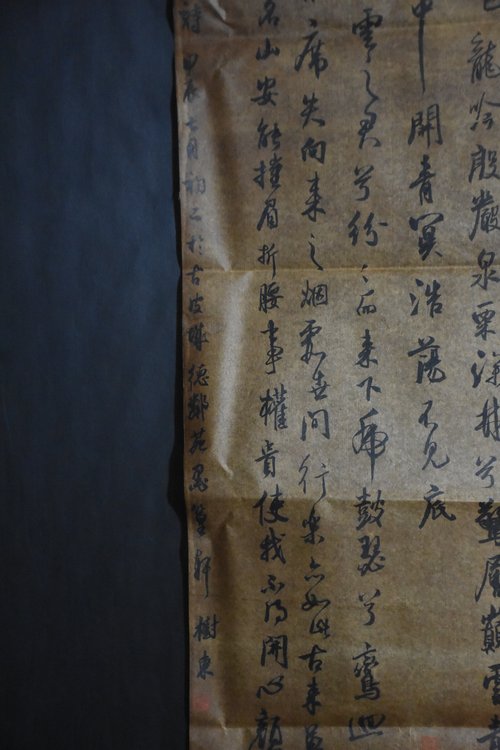 龍吟殷巖泉栗深林兮驚層巔雲青
中開青冥浩蕩不見底
雲之君兮紛々而來下虎鼓瑟兮鸞迴
席失向來之烟霞世間行樂亦如此古來萬
名山安能摧眉折腰事權貴使我不得開心顏
詩甲辰七月初二於古皮德鄰苑軒樹東